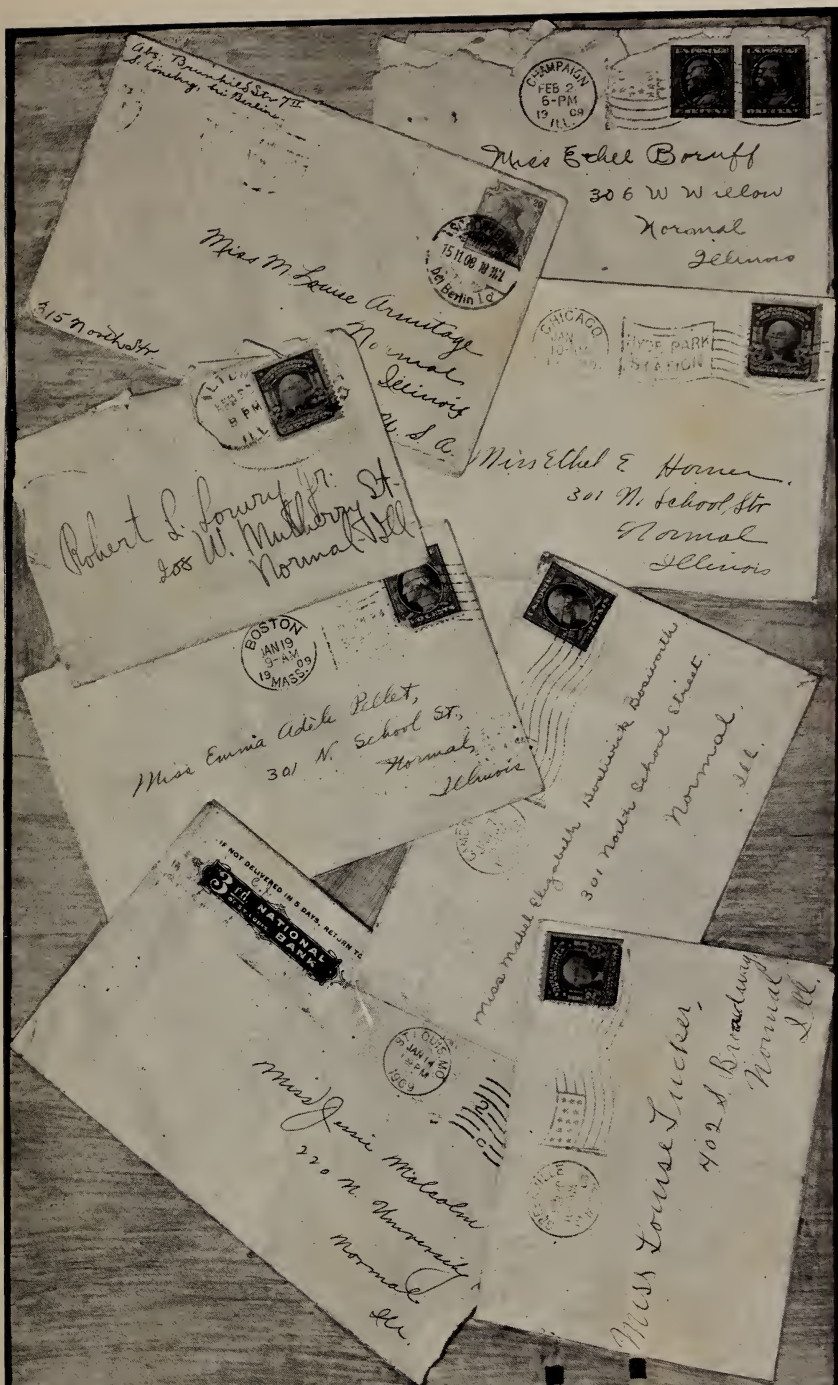 Abs: Brunhild Str 7 II
Schöneberg, bei Berlin.
15.11.08
Berlin
Miss M. Louise Armitage
Normal
Illinois
U. S. A.
315 North Str.
CHAMPAIGN
FEB 2
6-PM
19 09
ILL.
Miss Ethel Boruff
306 W Willow
Normal
Illinois
CHICAGO
JAN
HYDE PARK
STATION
Miss Ethel E Horner.
301 N. School, Str
Normal
Illinois
8 PM
ILL
Robert L. Lowry Jr.
208 W. Mulberry St-
Normal-Ill-
BOSTON
JAN 19
9-AM
19 09
MASS.
Miss Emma Adele Pellet,
301 N. School St.,
Normal,
Illinois
Miss Mabel Elizabeth Bostwick Bosworth
301 North School Street
Normal,
Ill.
IF NOT DELIVERED IN 5 DAYS, RETURN TO
3rd. NATIONAL
OF ST. LOUIS
BANK
ST. LOUIS, MO.
JAN 14
PM
1909
Miss Jessie Malcolm
220 N. University
Normal
Ill.
Miss Louise Tucker,
402 S. Broadway
Normal
Ill.